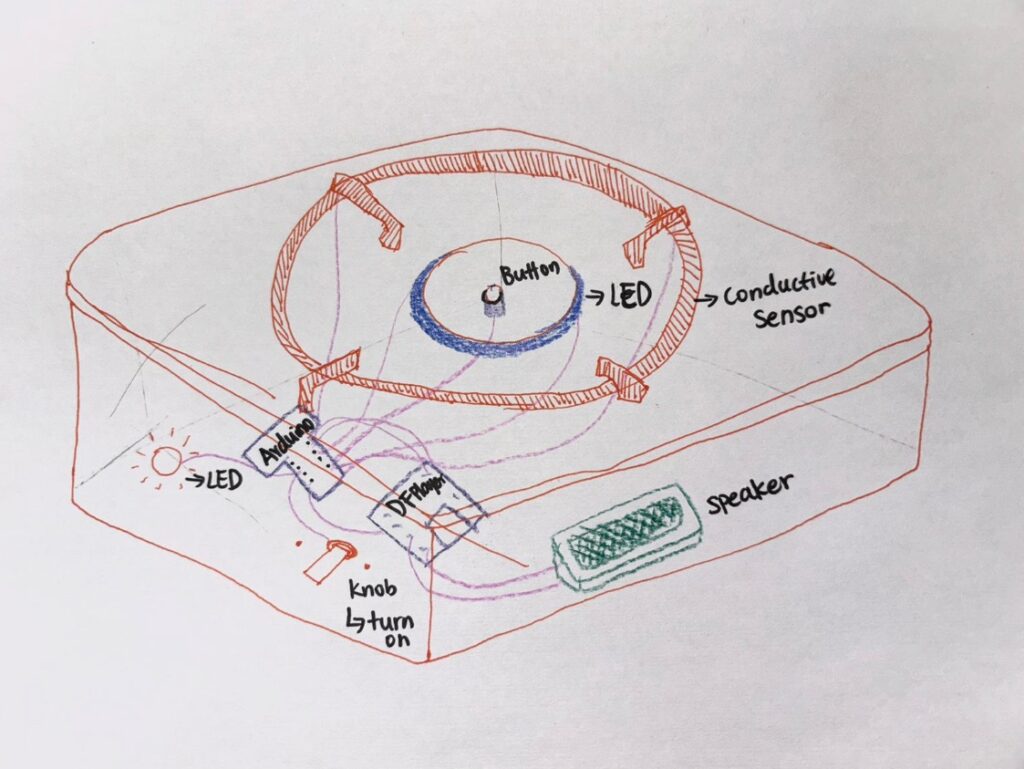 Button
→ LED
→ Conductive
Sensor
Arduino
→ LED
DFPlayer
Speaker
Knob
↳ turn
on